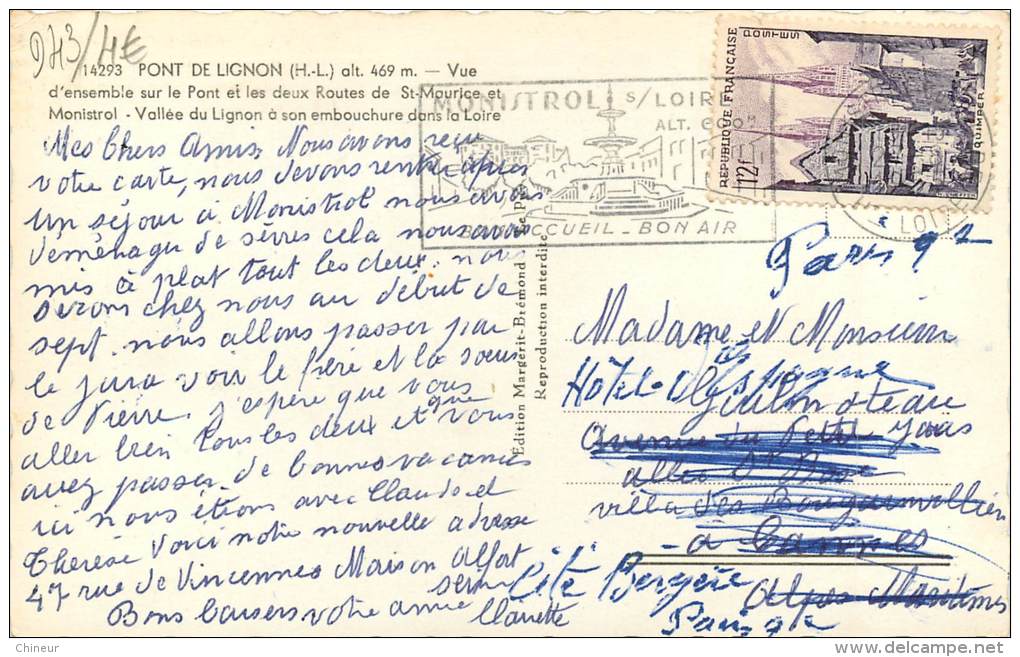 943/4€
14293 PONT DE LIGNON (H.-L.) alt. 469 m. — Vue
d'ensemble sur le Pont et les deux Routes de St-Maurice et
Monistrol - Vallée du Lignon à son embouchure dans la Loire
Mes Chers Amis. Nous avons reçu
votre carte, nous devons rentrer après
un séjour à Monistrol nous avons
déménagu de sèvres cela nous avons
mis à plat tout les deux. nous
serons chez nous au début de
sept. nous allons passer par
le jura voir le frère et la sœur
de Pierre. J'espère que vous
aller bien tous les deux et que vous
avez passer de bonnes vacances
ici nous étions avec Claude et
Therèse Voici notre nouvelle adresse
47 rue de Vincennes Maison Alfort
Seine
Bons baisers votre amie Clairette
Edition Margerit-Brémond
Reproduction interdite
MONISTROL s/ LOIRE
ALT. 600M
BON ACCUEIL - BON AIR
RÉPUBLIQUE FRANÇAISE
POSTES
12f
QUIMPER
LOIRE
Paris 9e
Madame et Monsieur
Hôtel
Avenue du Petit Juas
villa des Bougainvilliers
à Cannes
Alpes Maritimes
Cité Bergère
Paris 9e
Chineur
delcampe.net